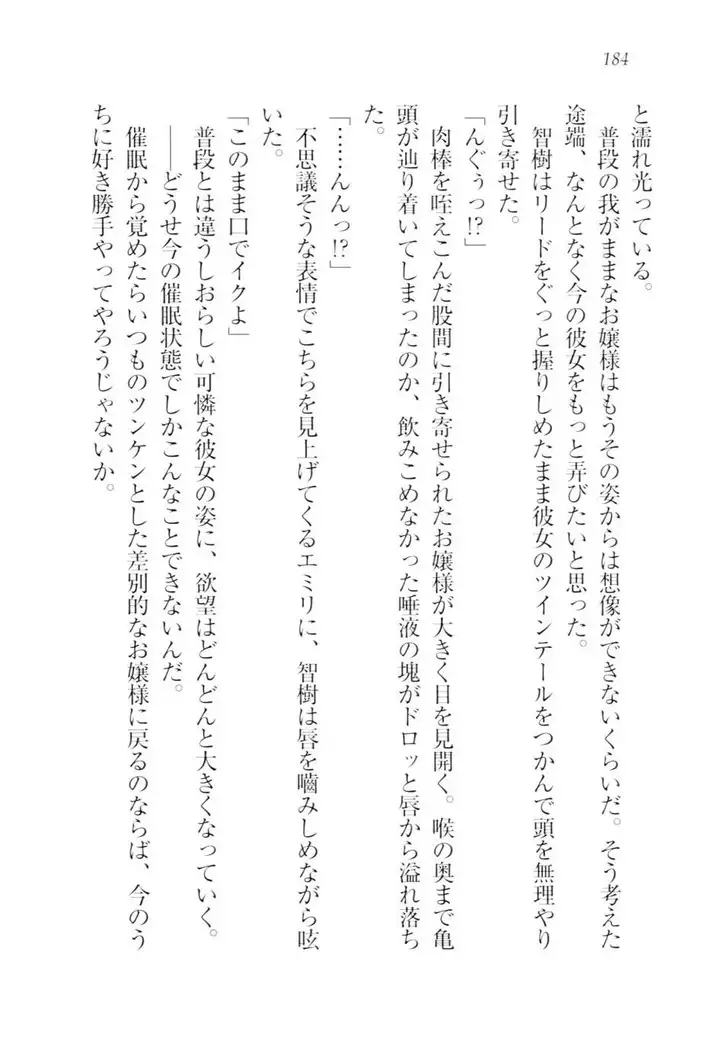 184
と濡れ光っている。
普段の我がままなお嬢様はもうその姿からは想像ができないくらいだ。そう考えた
途端、なんとなく今の彼女をもっと弄びたいと思った。
智樹はリードをぐっと握りしめたまま彼女のツインテールをつかんで頭を無理やり
引き寄せた。
「んぐぅっ!?」
肉棒を咥えこんだ股間に引き寄せられたお嬢様が大きく目を見開く。喉の奥まで亀
頭が辿り着いてしまったのか、飲みこめなかった唾液の塊がドロッと唇から溢れ落ち
た。
「……んんっ!?」
不思議そうな表情でこちらを見上げてくるエミリに、智樹は唇を嚙みしめながら呟
いた。
「このまま口でイクよ」
普段とは違うしおらしい可憐な彼女の姿に、欲望はどんどんと大きくなっていく。
――どうせ今の催眠状態でしかこんなことできないんだ。
催眠から覚めたらいつものツンケンとした差別的なお嬢様に戻るのならば、今のう
ちに好き勝手やってやろうじゃないか。